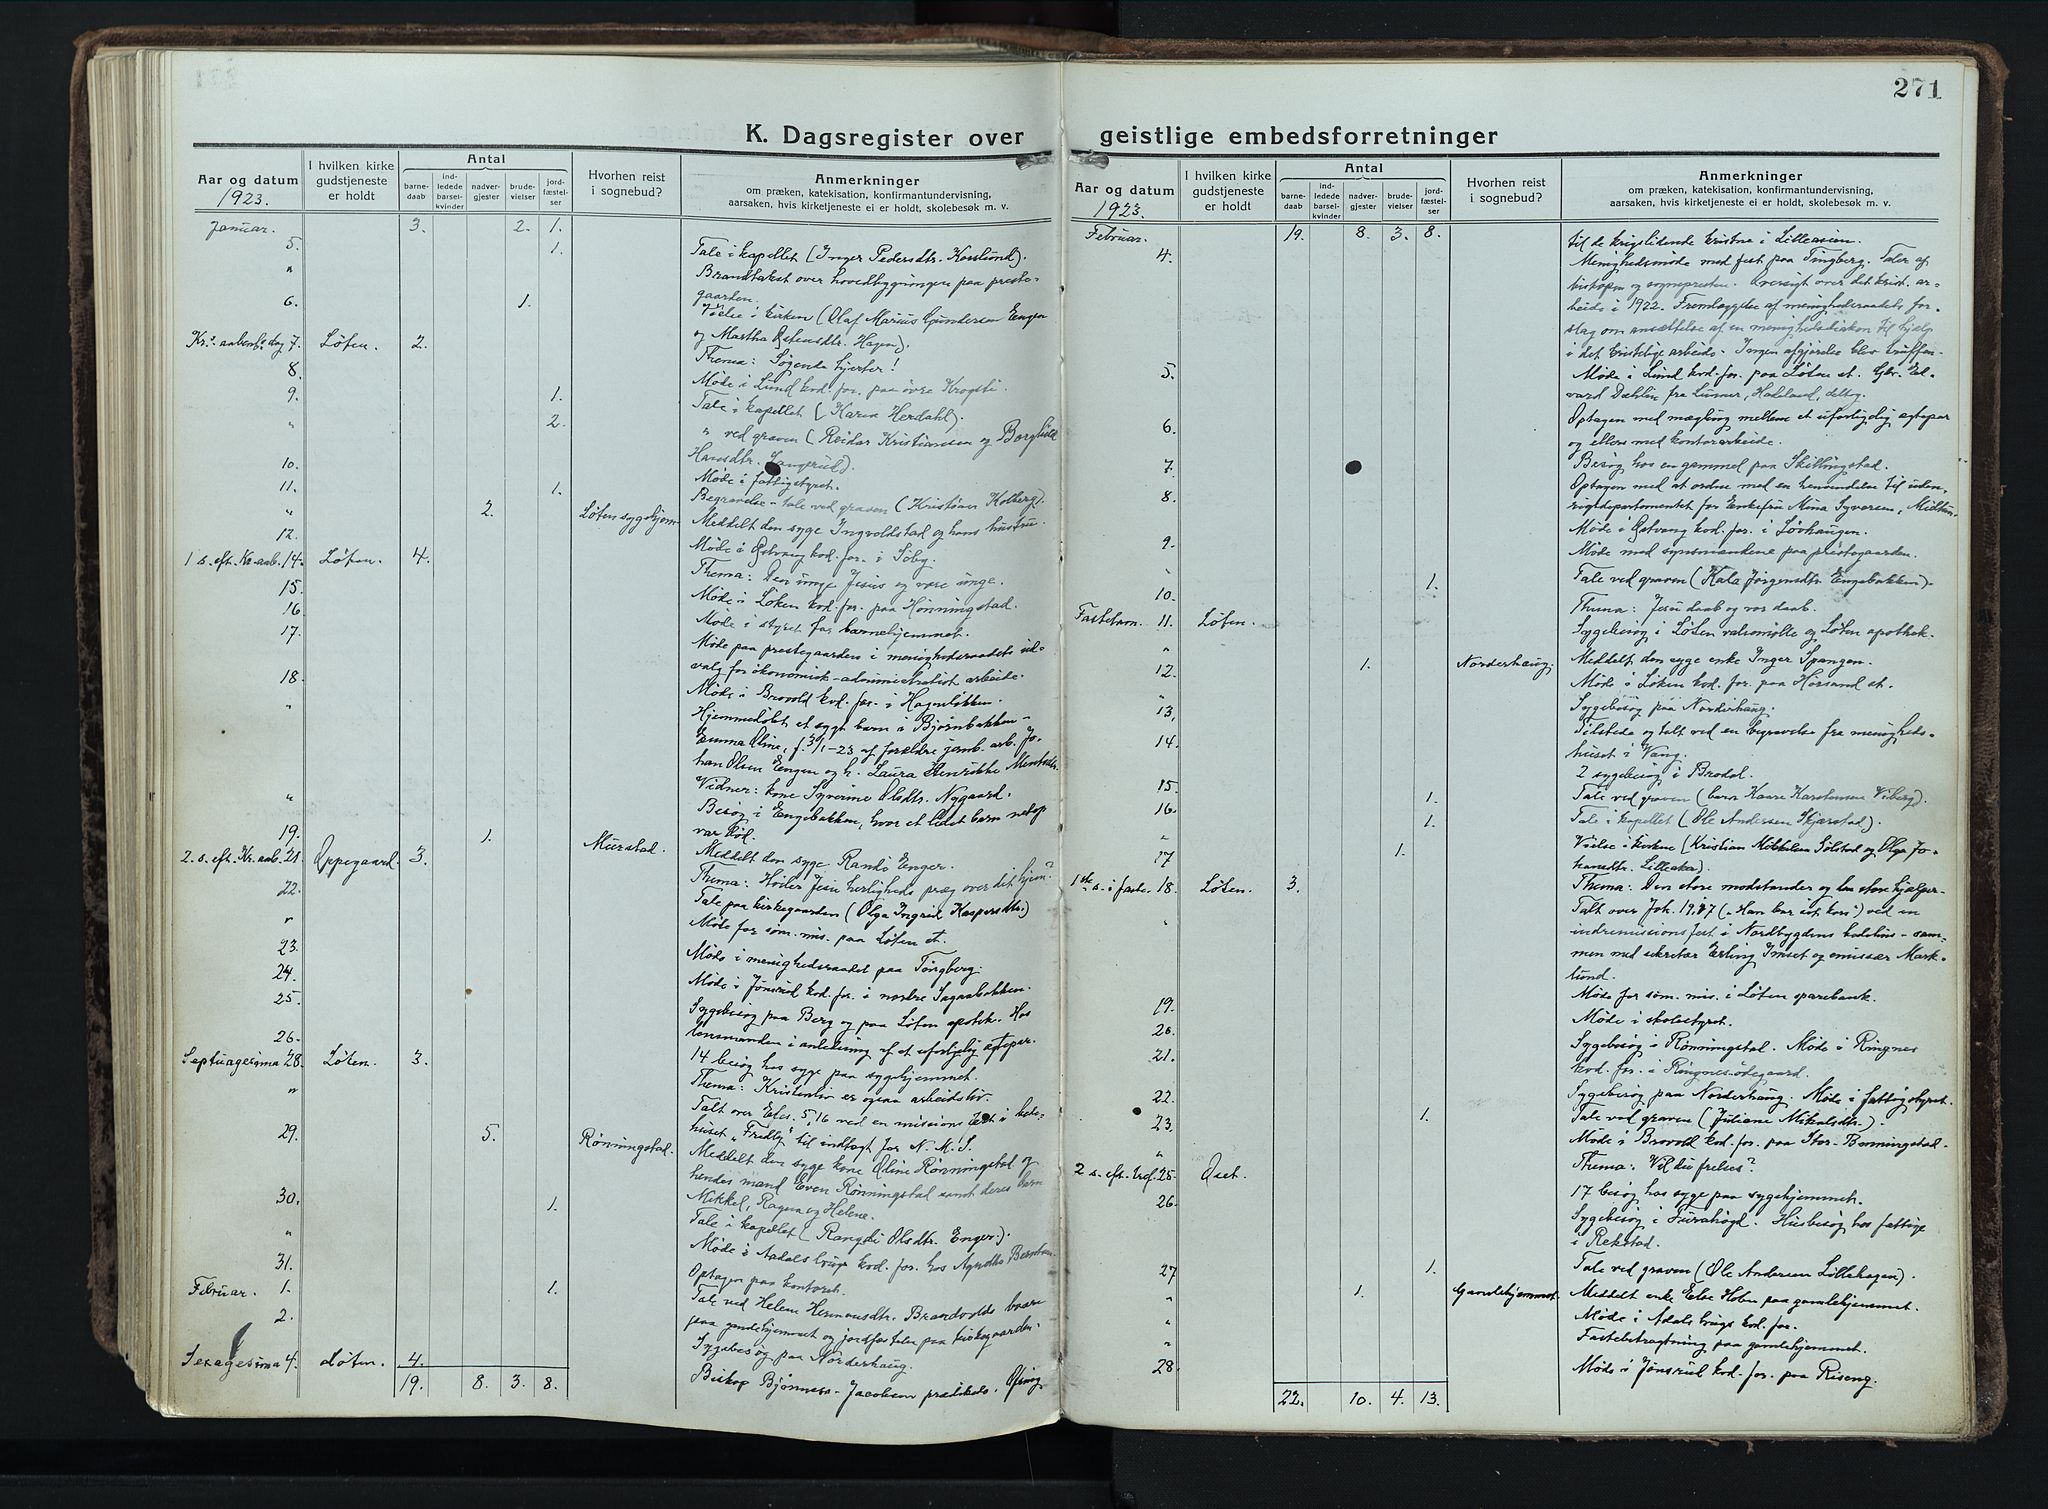 271
K. Dagsregister over geistlige embedsforretninger
Aar og datum
1923.
I hvilken kirke gudstjeneste er holdt
Antal
barnedaab
indledede barselkvinder
nadvergjester
brudevielser
jordfæstelser
Hvorhen reist i sognebud?
Anmerkninger
om præken, katekisation, konfirmantundervisning,
aarsaken, hvis kirketjeneste ei er holdt, skolebesøk m. v.
Januar. 3. 2. 1.
5. 1. Tale i kapellet (Inger Pedersdtr. Koselund).
" Brandtakst over hovedbygningen paa preste-
gaarden.
6. 1. Vielse i kirken (Olaf Marius Gundersen Engen
og Martha Hagen).
Kr. aabenb. dag 7. Løten. 2. Thema: Søgende hjerter!
8. Møde i Lund kvd. for. paa øvre Krogsti.
9. 1. Tale i kapellet (Karen Herdahl).
" 2. " ved graven (Reidar Kristiansen og Borghild
Hansdtr. Langerud).
10. Møde i fattigstyret.
11. 1. Begravelse - tale ved graven (Kristian Kolberg).
" 2. Løten sygehjem. Meddelt den syge Ingvoldstad og hans hustru.
12. Møde i Østvang kvd. for. i Søby.
1 s. eft. Kr. aab. 14. Løten. 4. Thema: Den unge Jesus og vore unge.
15. Møde i Løken kvd. for. paa Hønningstad.
16. Møde i styret for barnehjemmet.
17. Møde paa prestegaarden i menighedsraadets ud-
valg for økonomisk-administrativt arbeide.
18. Møde i Brovold kvd. for. i Hagenløkken.
" Hjemmedøbt et sygt barn i Bjørnbakken -
Emma Oline, f. 3/1-23 af forældre jernb. arb. Jo-
han Olsen Engen og h. Laura Henrikke
Vidner: kone Syverine Olsdtr. Nygaard.
" Besøg i Engebakken, hvor et lidet barn netop
var død.
19. 1. Murstad. Meddelt den syge Randi Enger.
2. s. eft. Kr. aab. 21. Oppegaard. 3. Thema: Hviler Jesu herligheds præg over dit hjem?
22. Tale paa kirkegaarden (Olga Ingrid Kaspersdtr.)
" Møde for søm. mis. paa Løten st.
23. Møde i menighedsraadet paa Tingberg.
24. Møde i Jønsrud kvd. for. i nordre Sagaabakken.
25. Sygebesøg paa Berg og paa Løten apotek. Hos
lensmanden i anledning af et uforligelig ægtepar.
26. 14 besøg hos syge paa sygehjemmet.
Septuagesima 28. Løten. 3. Thema: Kristenliv er ogsaa arbeidsliv.
" Talt over Efes. 5,16 ved en missions fest i bede-
huset "Fredly" til indtægt for N. M. S.
29. 5. Rønningstad. Meddelt den syge kone Oline Rønningstad og
hendes mand Even Rønningstad samt deres barn
Mikkel, Ragna og Helene.
30. 1. Tale i kapellet (Rangdi Olsdtr. Enger).
" Møde i Aadalsbruge kvd. for. hos Agnethe
31. Optagen paa kontoret.
Februar. 1. 1. Tale ved Helene Hermansdtr. Brandvolds baare
paa gamlehjemmet og jordfæstelse paa kirkegaarden.
2. Sygebesøg paa Norderhaug.
Sexagesima 4. Løten. 4. Biskop Bjønness-Jacobsen prædikede. Ofring
19. 8. 3. 8.
Aar og datum
1923.
I hvilken kirke gudstjeneste er holdt
Antal
barnedaab
indledede barselkvinder
nadvergjester
brudevielser
jordfæstelser
Hvorhen reist i sognebud?
Anmerkninger
om præken, katekisation, konfirmantundervisning,
aarsaken, hvis kirketjeneste ei er holdt, skolebesøk m. v.
Februar. 19. 8. 3. 8. til de krigslidende kristne i Lilleasien.
4. Menighedsmøde med fest paa Tingberg. Taler af
biskopen og sognepresten. Oversigt over det krist. ar-
beide i 1922. Fremlæggelse af menighedsraadets for-
slag om ansættelse af en menighedsdiakon til hjælp
i det kristelige arbeide. Ingen afgjørelse blev truffen.
5. Møde i Lund kvd. for. paa Løten st. Gbr. Ed-
vard Dæhlin fra Lunner, Hadeland, deltog.
6. Optagen med mægling mellem et uforligelig ægtepar
og ellers med kontorarbeide.
7. Besøg hos en gammel paa Skillingstad.
8. Optagen med at ordne med en henvendelse til uden-
rigsdepartementet for Enkefru Mina Syversen, Midtun.
Møde i Østvang kvd. for. i Løvhaugen.
9. Møde med synsmændene paa prestegaarden.
" 1. Tale ved graven (Kala Jørgensdtr. Engebakken).
10.
Fastelavn. 11. Løten. Thema: Jesu daab og vor daab.
" Sygebesøg i Løten valsemølle og Løten apothek.
12. 1. Norderhaug. Meddelt den syge enke Inger Spangen.
" Møde i Løken kvd. for. paa Hørsand st.
13. Sygebesøg paa Norderhaug.
14. Tilstede og talt ved en begravelse fra menigheds-
huset i Vang.
15. 2 sygebesøg i Brodal.
16. 1. Tale ved graven (barn Kaare Karstensen Viberg).
" 1. Tale i kapellet (Ole Andersen Skjærstad).
17 1. Vielse i kirken (Kristian Mikkelsen Gilstad og Olga Jo-
hansdtr. Lilleaker).
1ste s. i faste. 18. Løten. 3. Thema: Den store modstander og den store hjælper.
" Talt over Joh. 19,17 ("Han bar sit kors") ved en
indremissionsfest i Nordbygdens bedehus - sam-
men med sekretær Erling Imset og emissær Mark-
lund.
19. Møde for søm. mis. i Løten sparebank.
20. Møde i skolestyret.
21. Sygebesøg i Rønningstad. Møde i Ringnes
kvd. for. i Ringnes-ødegaard.
22. Sygebesøg paa Norderhaug. Møde i fattigstyret.
23. 1. Tale ved graven (Juliane Mikalsdtr.).
" Møde i Brovold kvd. for. paa Stor-Benningstad.
2 s. eft. tref. 25. Oset. Thema: Vil du frelses?
26. 17 besøg hos syge paa sygehjemmet.
Sygebesøg i Furahøgd. Husbesøg hos fattige
i Rekstad.
27 1. Tale ved graven (Ole Andersen Lillehagen).
" 1. Gamlehjemmet. Meddelt enke Else Holen paa gamlehjemmet.
" Møde i Adalsbruge kvd. for.
" Fastebetragtning paa gamlehjemmet.
28. Møde i Jønsrud kvd. for. paa Riseng.
22. 10. 4. 13.